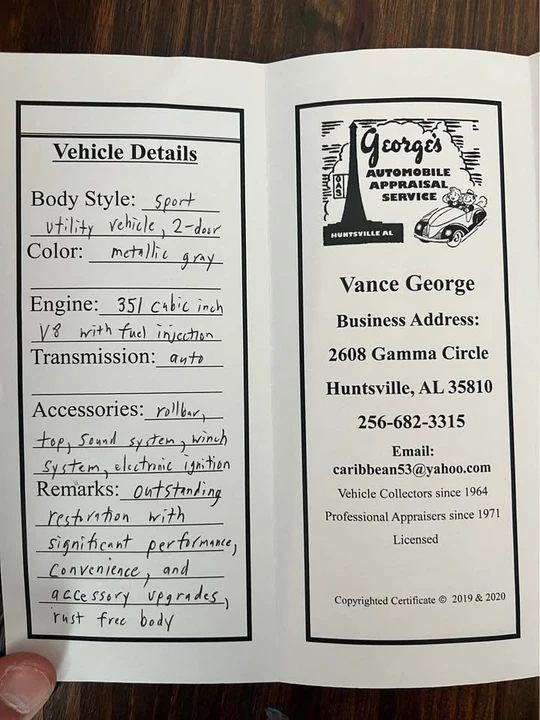 Vehicle Details
Body Style: sport
utility vehicle, 2-door
Color: metallic gray
Engine: 351 cubic inch
V8 with fuel injection
Transmission: auto
Accessories: rollbar,
top, sound system, winch
system, electronic ignition
Remarks: outstanding
restoration with
significant performance,
convenience, and
accessory upgrades,
rust free body
George's
AUTOMOBILE
APPRAISAL
SERVICE
GAS
HUNTSVILLE AL
Vance George
Business Address:
2608 Gamma Circle
Huntsville, AL 35810
256-682-3315
Email:
caribbean53@yahoo.com
Vehicle Collectors since 1964
Professional Appraisers since 1971
Licensed
Copyrighted Certificate © 2019 & 2020